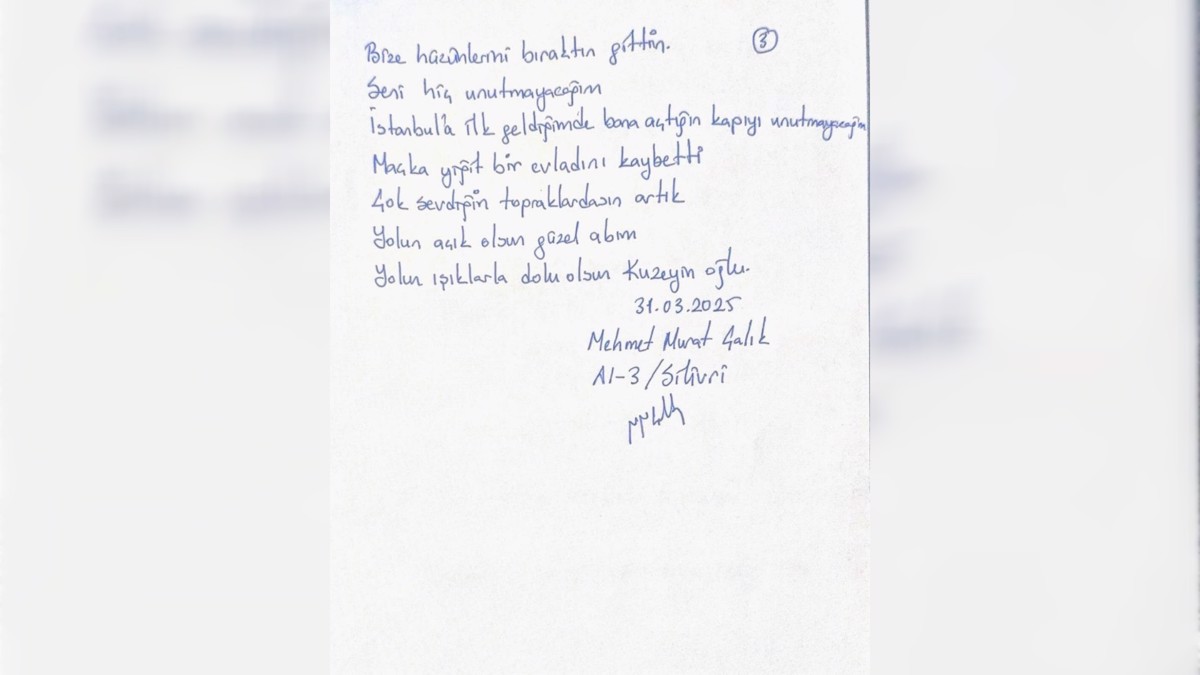 Bize hüzünlerini bıraktın gittin.
3
Seni hiç unutmayacağım
İstanbul'a ilk geldiğimde bana açtığın kapıyı unutmayacağım
Maçka yiğit bir evladını kaybetti
Çok sevdiğin topraklardasın artık
Yolun açık olsun güzel abim
Yolun ışıklarla dolu olsun Kuzeyin oğlu.
31.03.2025
Mehmet Murat Çalık
A1-3/Silivri